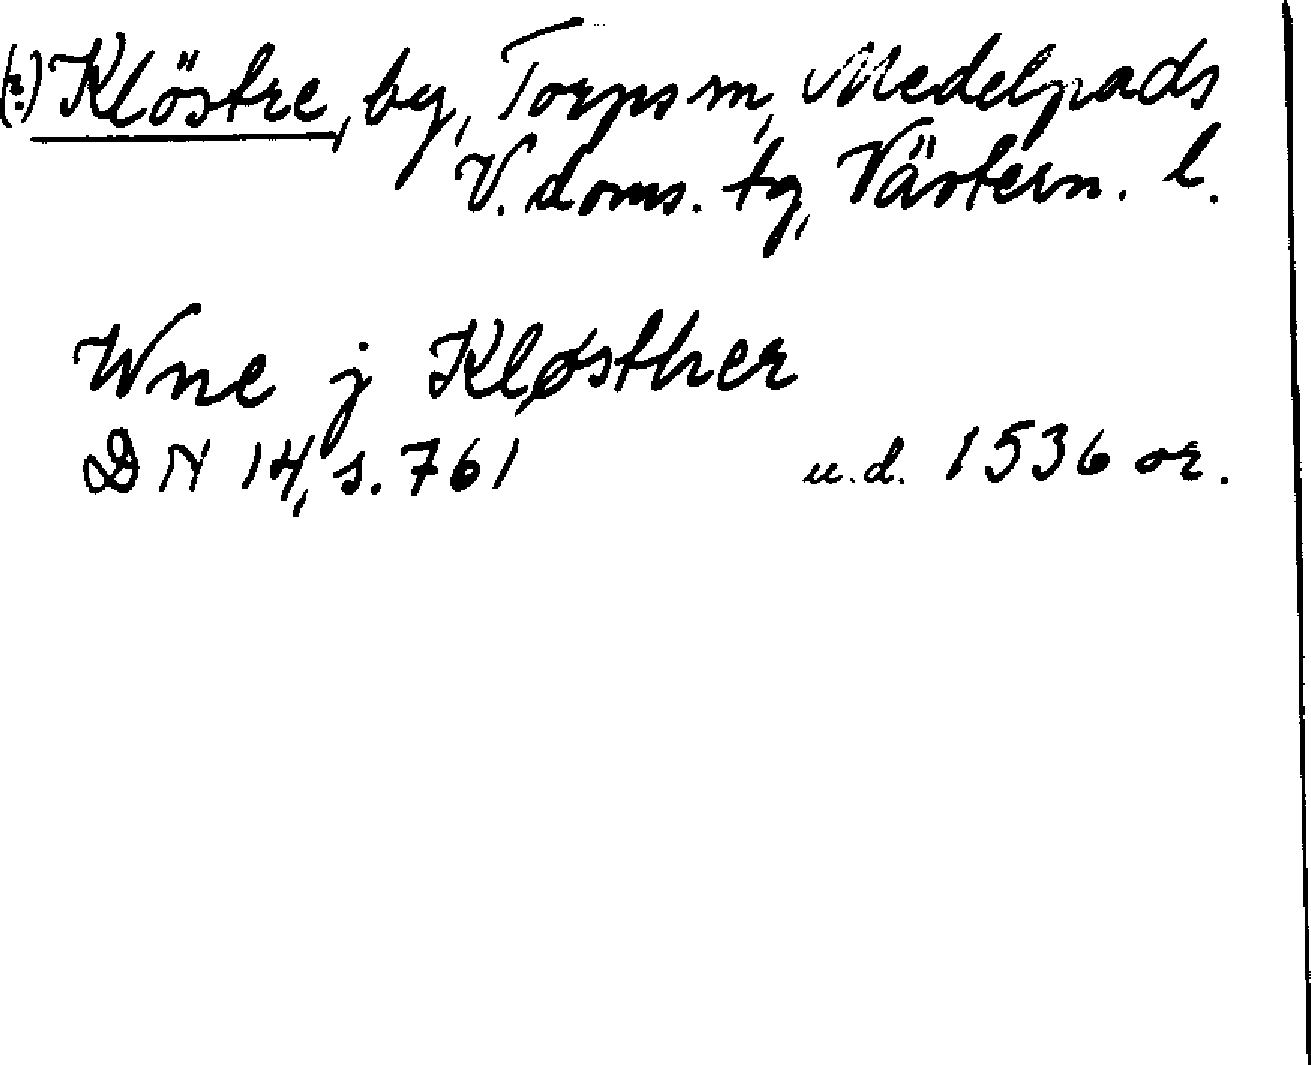 (?) Klöstre, by, Torps sn, Medelpads
V. doms. tg, Västern. l.
Wne j Kløsther
DN 14, s. 761 u.d. 1536 or.